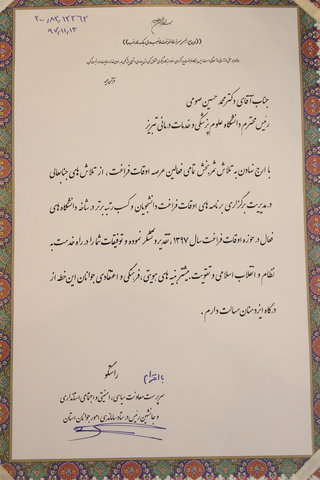 ۲۰۰/۸۲/۱۲۲۶۲
۹۷/۱۱/۱۳
جناب آقای دکتر محمد حسین صومی
رئیس محترم دانشگاه علوم پزشکی و خدمات درمانی تبریز
با ارج نهادن به تلاش ثمربخش تمامی فعالین عرصه اوقات فراغت، از تلاش های جنابعالی
در مدیریت برگزاری برنامه های اوقات فراغت دانشجویان و کسب رتبه برتر در شاخه دانشگاه های
فعال در حوزه اوقات فراغت سال ۱۳۹۷، تقدیر و تشکر نموده و توفیقات شما را در راه خدمت به
نظام و انقلاب اسلامی و تقویت بیشتر بنیه های هویتی، فرهنگی و اعتقادی جوانان این خطه از
درگاه ایزد منان مسالت دارم.
با احترام
راستگو
سرپرست معاونت سیاسی، امنیتی و اجتماعی استانداری
و جانشین رئیس در ستاد ساماندهی امور جوانان استان